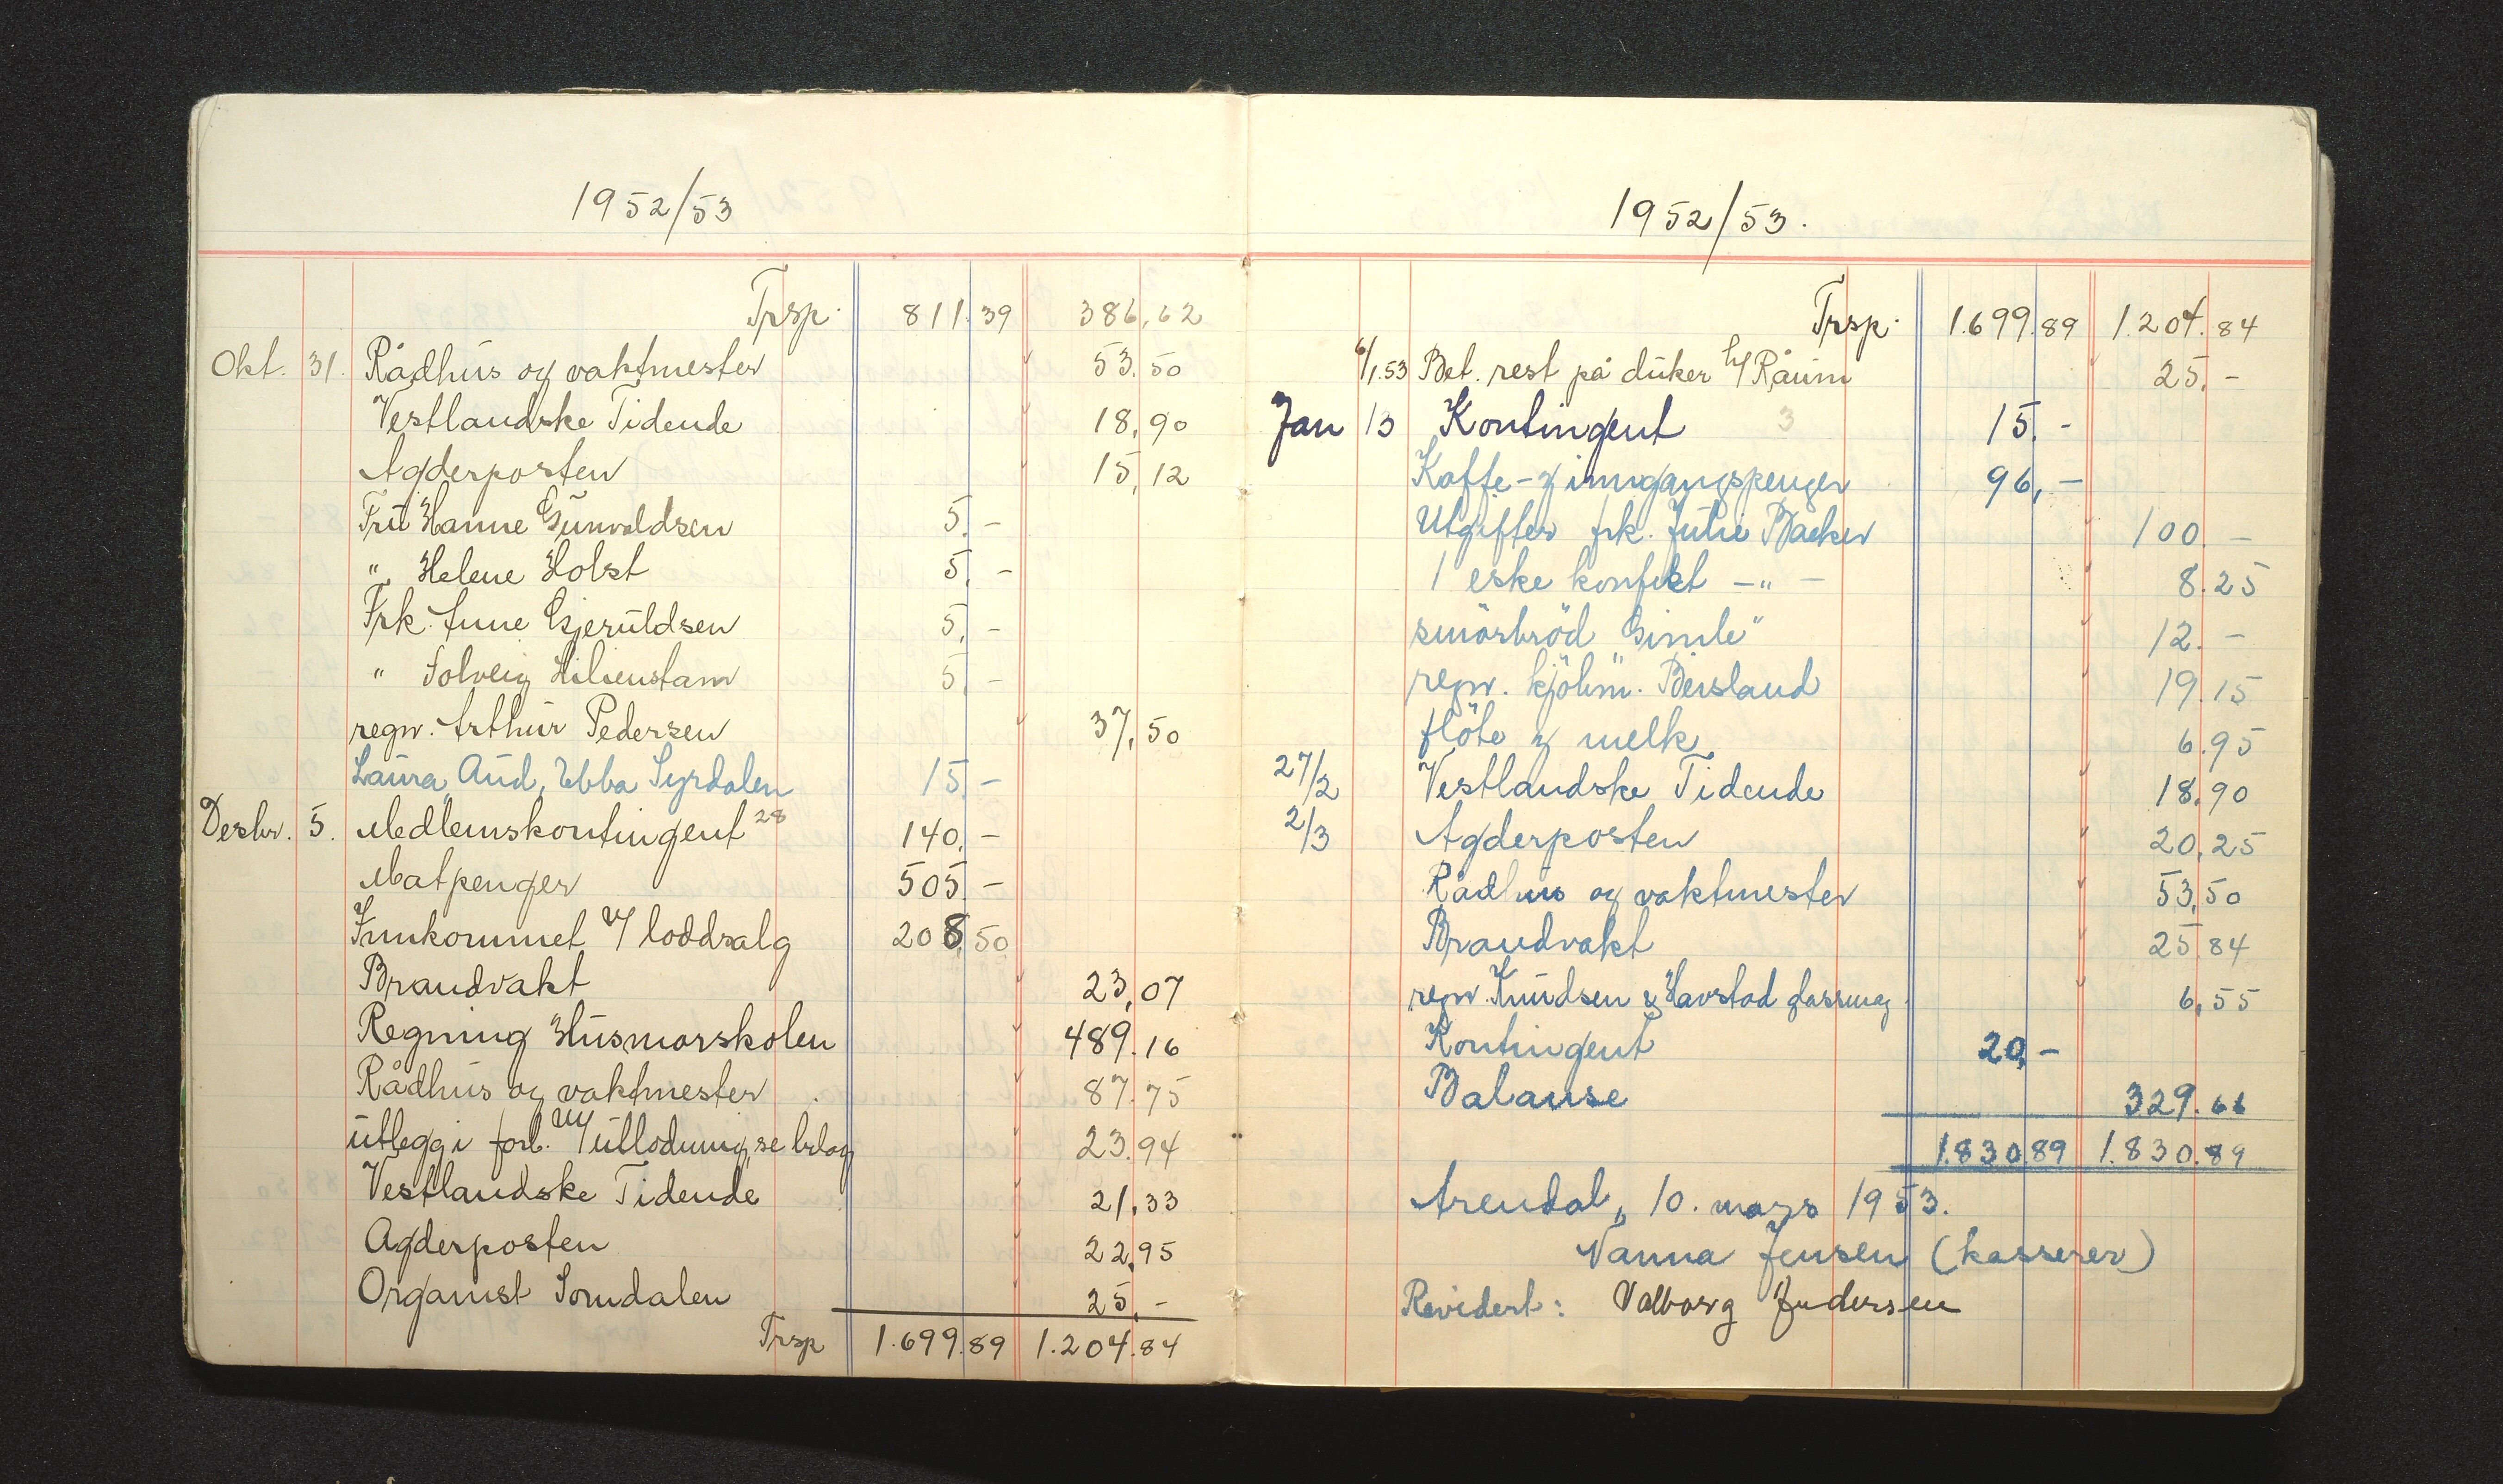 1952/53
Trsp. 811.39 386,62
Okt. 31. Rådhus og vaktmester 53.50
Vestlandske Tidende 18,90
Agderposten 15,12
Fru Hanne Gunvaldsen 5.-
" Helene Holst 5.-
Frk. Anne Gjeruldsen 5.-
" Solveig Lilienstam 5.-
regn. Arthur Pedersen 37,50
Laura, Aud, Ebba Syrdalen 15.-
Desbr. 5. Medlemskontingent 28 140.-
Matpenger 505.-
Innkommet v/ loddsalg 208,50
Brandvakt 23,07
Regning Husmorskolen 489.16
Rådhus og vaktmester 87.75
utlegg i forb. m/ utlodning, se bilag 23.94
Vestlandske Tidende 21,33
Agderposten 22,95
Organist Somdalen 25,-
Trsp 1.699.89 1.204.84
1952/53.
Trsp. 1.699.89 1.204.84
6/1.53 Bet. rest på duker h/ Raum 25.-
Jan 13 Kontingent 3 15.-
Kaffe- og inngangspenger 96,-
Utgifter frk. Julie Backer 100.-
1 eske konfekt -"- 8.25
smörbröd "Gimle" 12.-
regn. kjöbm. Beisland 19.15
flöte og melk 6.95
27/2 Vestlandske Tidende 18,90
2/3 Agderposten 20,25
Rådhus og vaktmester 53,50
Brandvakt 25.84
regn. Knudsen & Havstad glassmag. 6,55
Kontingent 20,-
Balanse 329.66
1.830.89 1.830.89
Arendal, 10. mars 1953.
Nanna Jensen (kasserer)
Revidert: Valborg Andersen